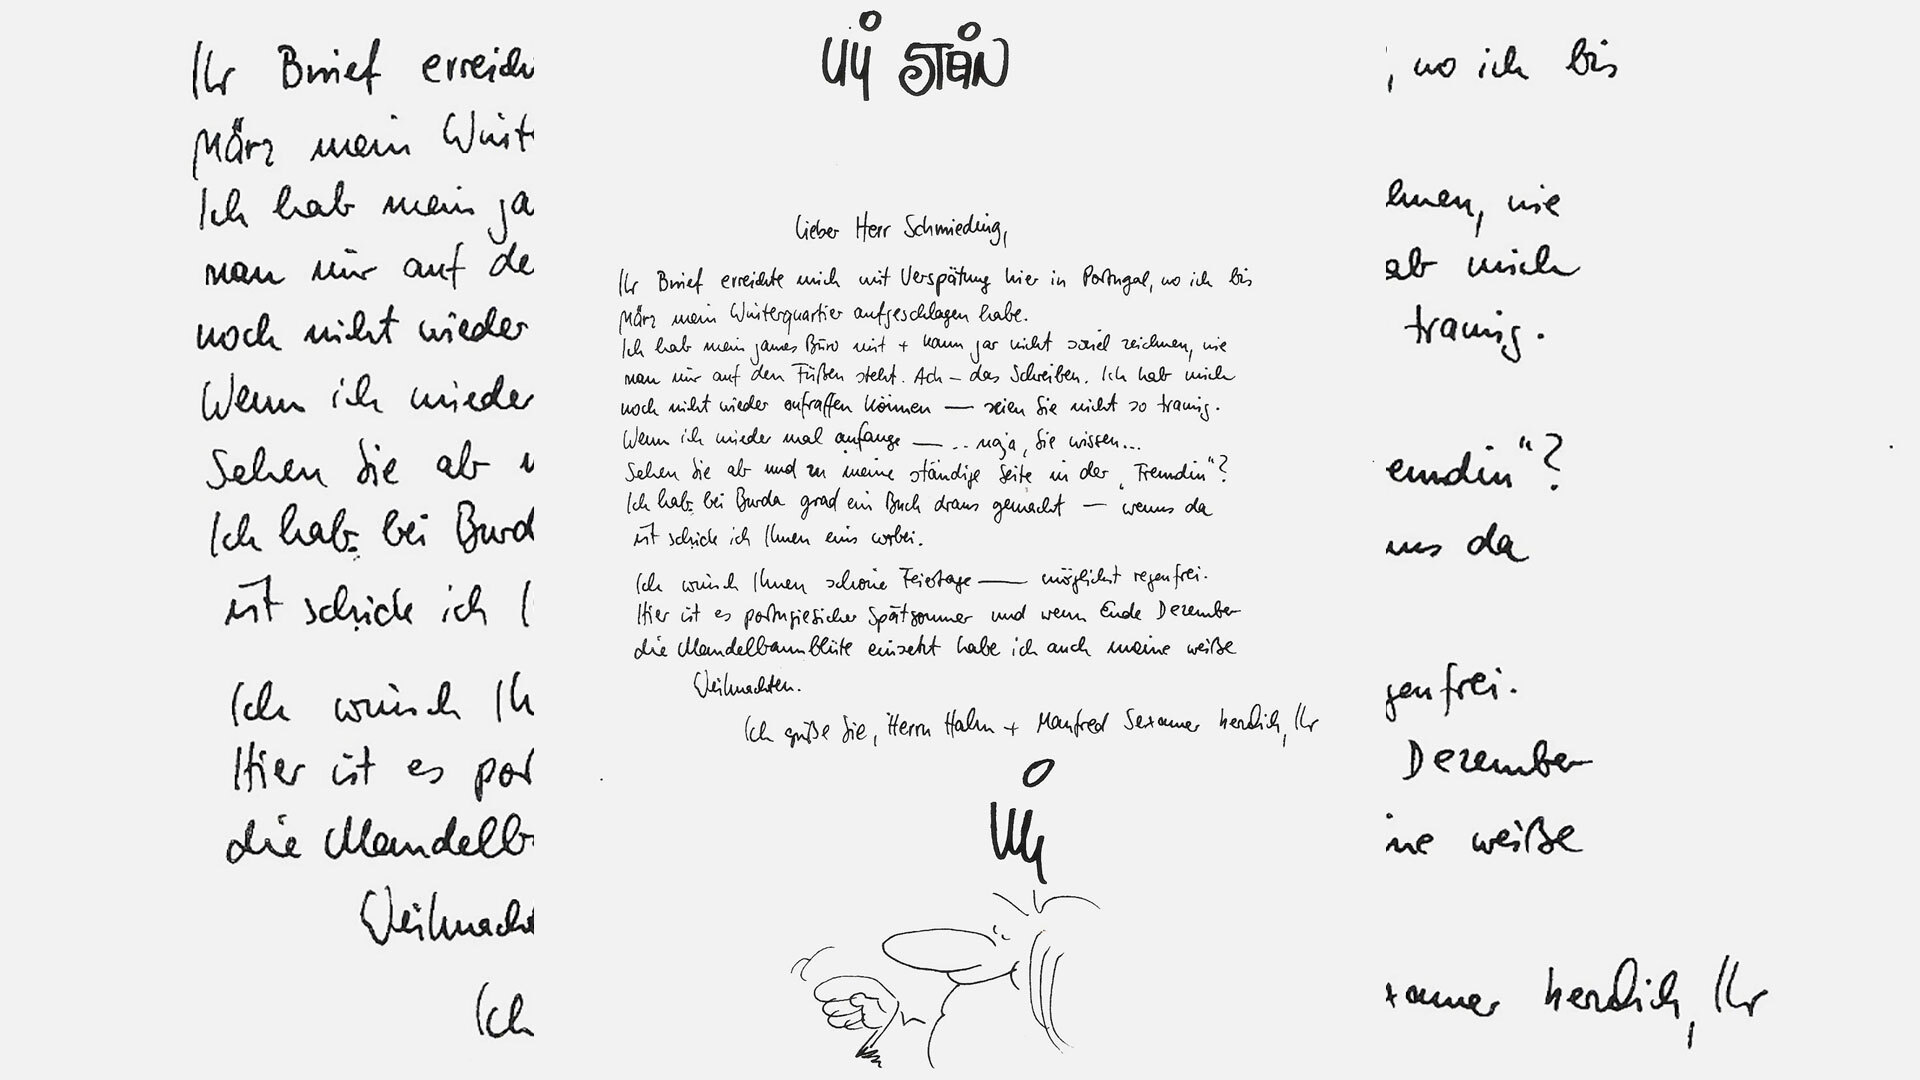 Uli STEIN
Lieber Herr Schmieding,
Ihr Brief erreichte mich mit Verspätung hier in Portugal, wo ich bis
März mein Winterquartier aufgeschlagen habe.
Ich hab mein ganzes Büro mit + kann gar nicht soviel zeichnen, wie
man mir auf den Füßen steht. Ach – das Schreiben. Ich hab mich
noch nicht wieder aufraffen können — seien Sie nicht so traurig.
Wenn ich wieder mal anfange — .. naja, Sie wissen...
Sehen Sie ab und zu meine ständige Seite in der „Freundin"?
Ich hab bei Burda grad ein Buch draus gemacht — wenns da
ist schicke ich Ihnen eins vorbei.
Ich wünsch Ihnen schöne Feiertage — möglichst regenfrei.
Hier ist es portugiesischer Spätsommer und wenn Ende Dezember
die Mandelbaumblüte einsetzt habe ich auch meine weiße
Weihnachten.
Ich grüße Sie, Herrn Hahn + Manfred Sexauer herzlich, Ihr
Uli
Ihr Brief erreich
März mein Wint
Ich hab mein ga
man mir auf de
noch nicht wieder
Wenn ich wieder
Sehen Sie ab
Ich hab bei Burd
ist schicke ich I
Ich wünsch Ih
Hier ist es por
die Mandelb
Weihnacht
Ich
, wo ich bis
hnen, wie
ab mich
traurig.
eundin"?
nns da
genfrei.
Dezember
ine weiße
xauer herzlich, Ihr